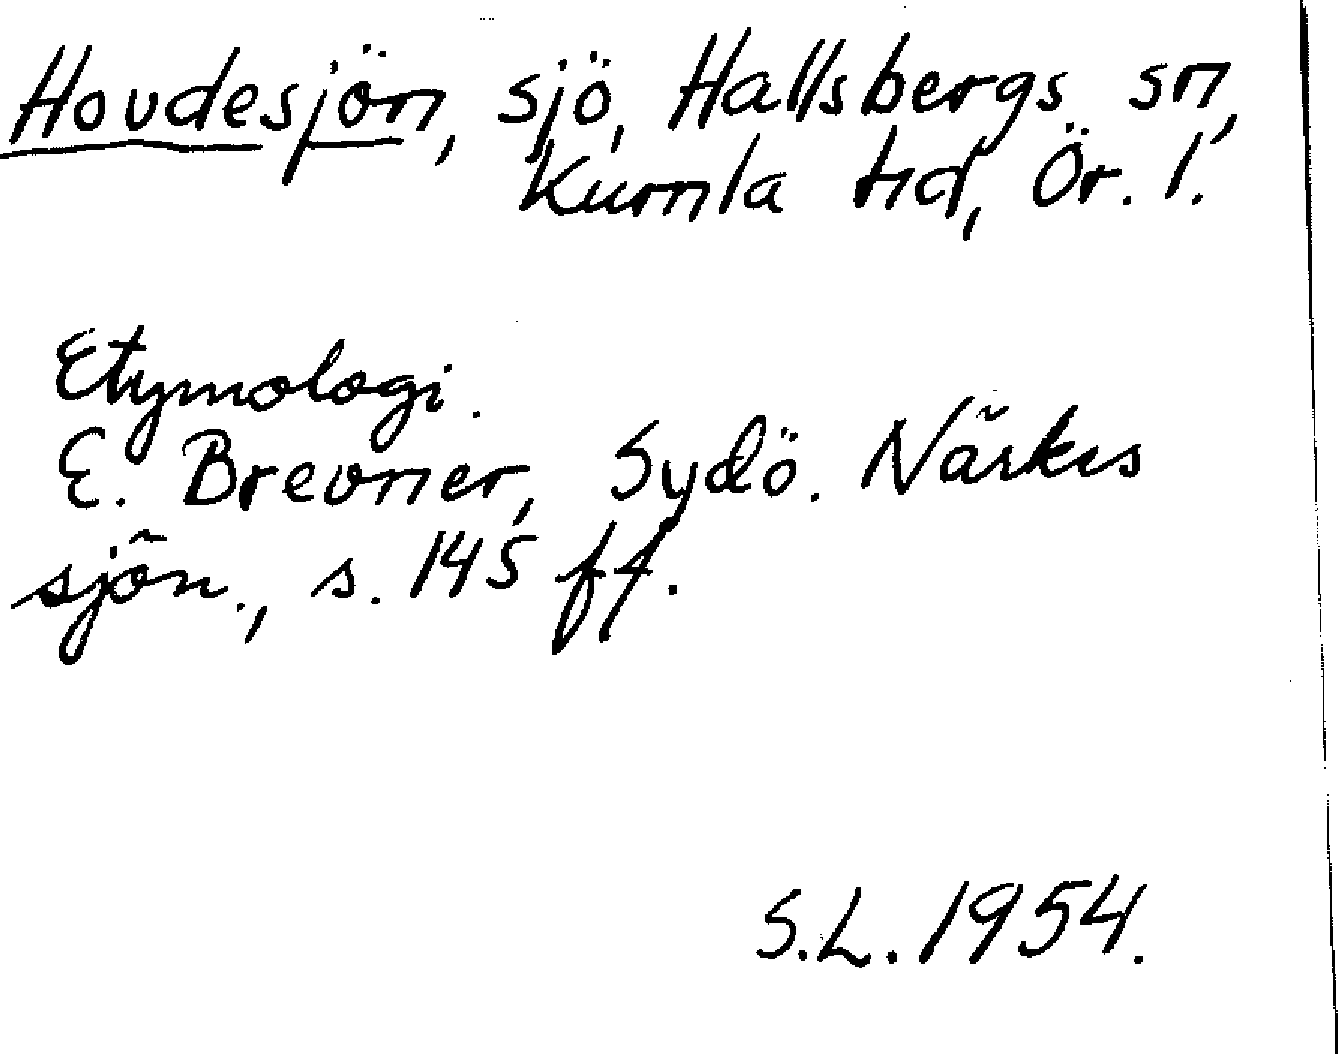 Hovdesjön, sjö, Hallsbergs sn,
Kumla hd, Ör. l.
Etymologi.
E. Brevner, Sydö. Närkes
sjön., s. 145 ff.
S.L. 1954.